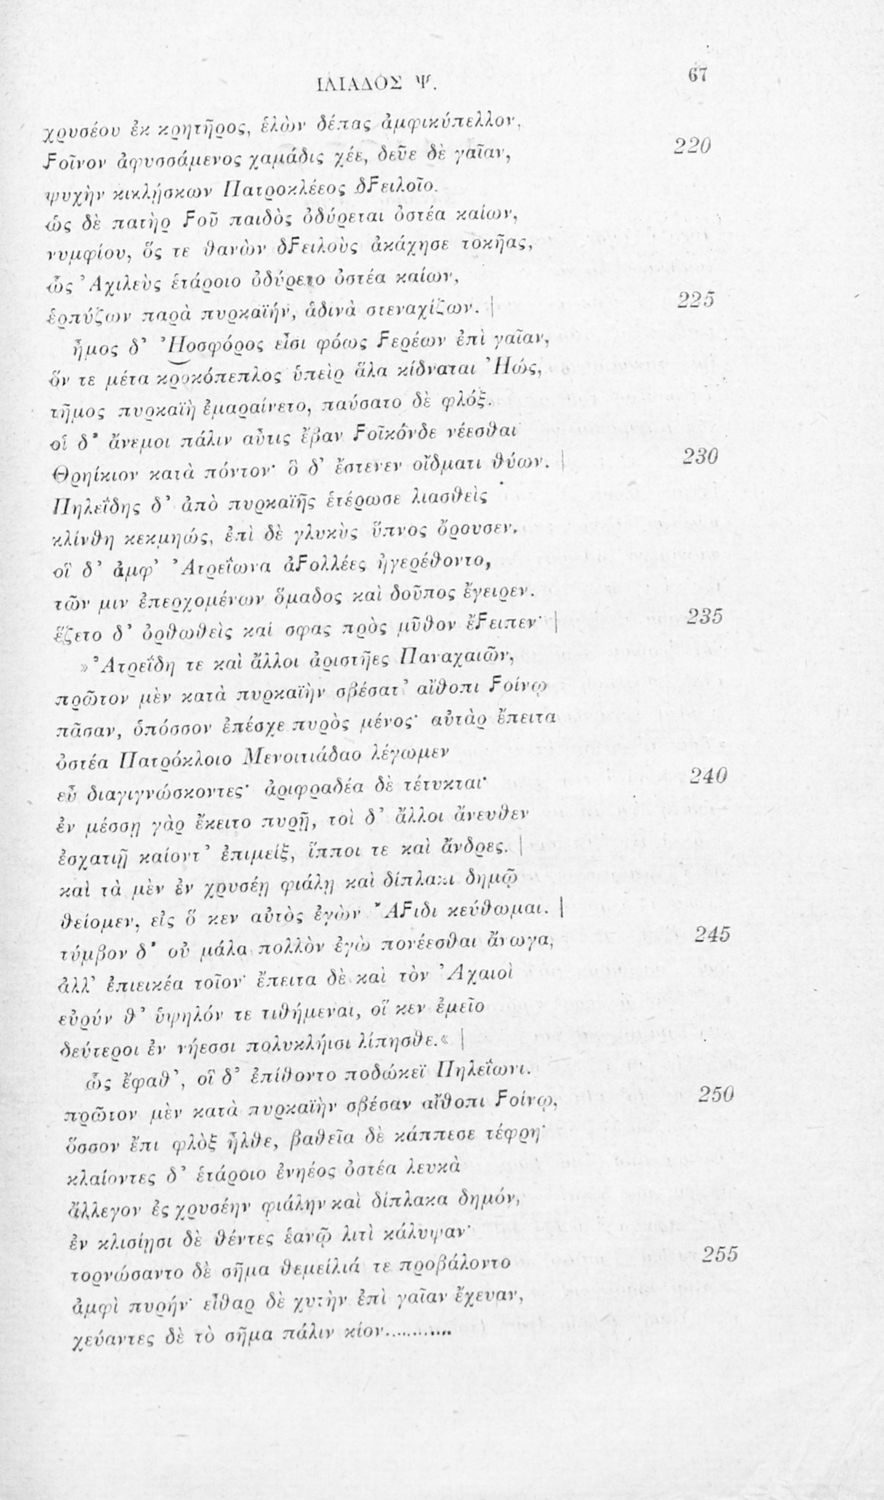 ΙΛΙΑΔΟΣ Ψ. 67
χρυσέου ἐκ κρητῆρος, ἑλὼν δέπας ἀμφικύπελλον,
Ϝοῖνον ἀφυσσάμενος χαμάδις χέε, δεῦε δὲ γαῖαν, 220
ψυχὴν κικλήσκων Πατροκλέεος δϜειλοῖο.
ὡς δὲ πατὴρ Ϝοῦ παιδὸς ὀδύρεται ὀστέα καίων,
νυμφίου, ὅς τε θανὼν δϜειλοὺς ἀκάχησε τοκῆας,
ὣς Ἀχιλεὺς ἑτάροιο ὀδύρετο ὀστέα καίων,
ἑρπύζων παρὰ πυρκαϊήν, ἁδινὰ στεναχίζων. | 225
ἦμος δ’ Ἡοσφόρος εἶσι φόως Ϝερέων ἐπὶ γαῖαν,
ὅν τε μέτα κροκόπεπλος ὑπεὶρ ἅλα κίδναται Ἠώς,
τῆμος πυρκαϊὴ ἐμαραίνετο, παύσατο δὲ φλόξ.
οἱ δ’ ἄνεμοι πάλιν αὖτις ἔβαν Ϝοῖκόνδε νέεσθαι
Θρηίκιον κατὰ πόντον· ὃ δ’ ἔστενεν οἴδματι θύων. | 230
Πηλεΐδης δ’ ἀπὸ πυρκαϊῆς ἑτέρωσε λιασθεὶς
κλίνθη κεκμηώς, ἐπὶ δὲ γλυκὺς ὕπνος ὄρουσεν.
οἳ δ’ ἀμφ’ Ἀτρεΐωνα ἀϜολλέες ἠγερέθοντο,
τῶν μιν ἐπερχομένων ὅμαδος καὶ δοῦπος ἔγειρεν.
ἕζετο δ’ ὀρθωθεὶς καί σφας πρὸς μῦθον ἔϜειπεν· | 235
»Ἀτρεΐδη τε καὶ ἄλλοι ἀριστῆες Παναχαιῶν,
πρῶτον μὲν κατὰ πυρκαϊὴν σβέσατ’ αἴθοπι Ϝοίνῳ
πᾶσαν, ὁπόσσον ἐπέσχε πυρὸς μένος· αὐτὰρ ἔπειτα
ὀστέα Πατρόκλοιο Μενοιτιάδαο λέγωμεν
εὖ διαγιγνώσκοντες· ἀριφραδέα δὲ τέτυκται· 240
ἐν μέσσῃ γὰρ ἔκειτο πυρῇ, τοὶ δ’ ἄλλοι ἄνευθεν
ἐσχατιῇ καίοντ’ ἐπιμείξ, ἵπποι τε καὶ ἄνδρες. |
καὶ τὰ μὲν ἐν χρυσέῃ φιάλῃ καὶ δίπλακι δημῷ
θείομεν, εἰς ὅ κεν αὐτὸς ἐγὼν ἌϜιδι κεύθωμαι. |
τύμβον δ’ οὐ μάλα πολλὸν ἐγὼ πονέεσθαι ἄνωγα, 245
ἀλλ’ ἐπιεικέα τοῖον· ἔπειτα δὲ καὶ τὸν Ἀχαιοὶ
εὐρύν θ’ ὑψηλόν τε τιθήμεναι, οἵ κεν ἐμεῖο
δεύτεροι ἐν νήεσσι πολυκλήισι λίπησθε.« |
ὣς ἔφαθ’, οἳ δ’ ἐπίθοντο ποδώκεϊ Πηλεΐωνι.
πρῶτον μὲν κατὰ πυρκαϊὴν σβέσαν αἴθοπι Ϝοίνῳ, 250
ὅσσον ἔπι φλὸξ ἦλθε, βαθεῖα δὲ κάππεσε τέφρη·
κλαίοντες δ’ ἑτάροιο ἐνηέος ὀστέα λευκὰ
ἄλλεγον ἐς χρυσέην φιάλην καὶ δίπλακα δημόν,
ἐν κλισίῃσι δὲ θέντες ἑανῷ λιτὶ κάλυψαν·
τορνώσαντο δὲ σῆμα θεμείλιά τε προβάλοντο 255
ἀμφὶ πυρήν· εἶθαρ δὲ χυτὴν ἐπὶ γαῖαν ἔχευαν,
χεύαντες δὲ τὸ σῆμα πάλιν κίον...........